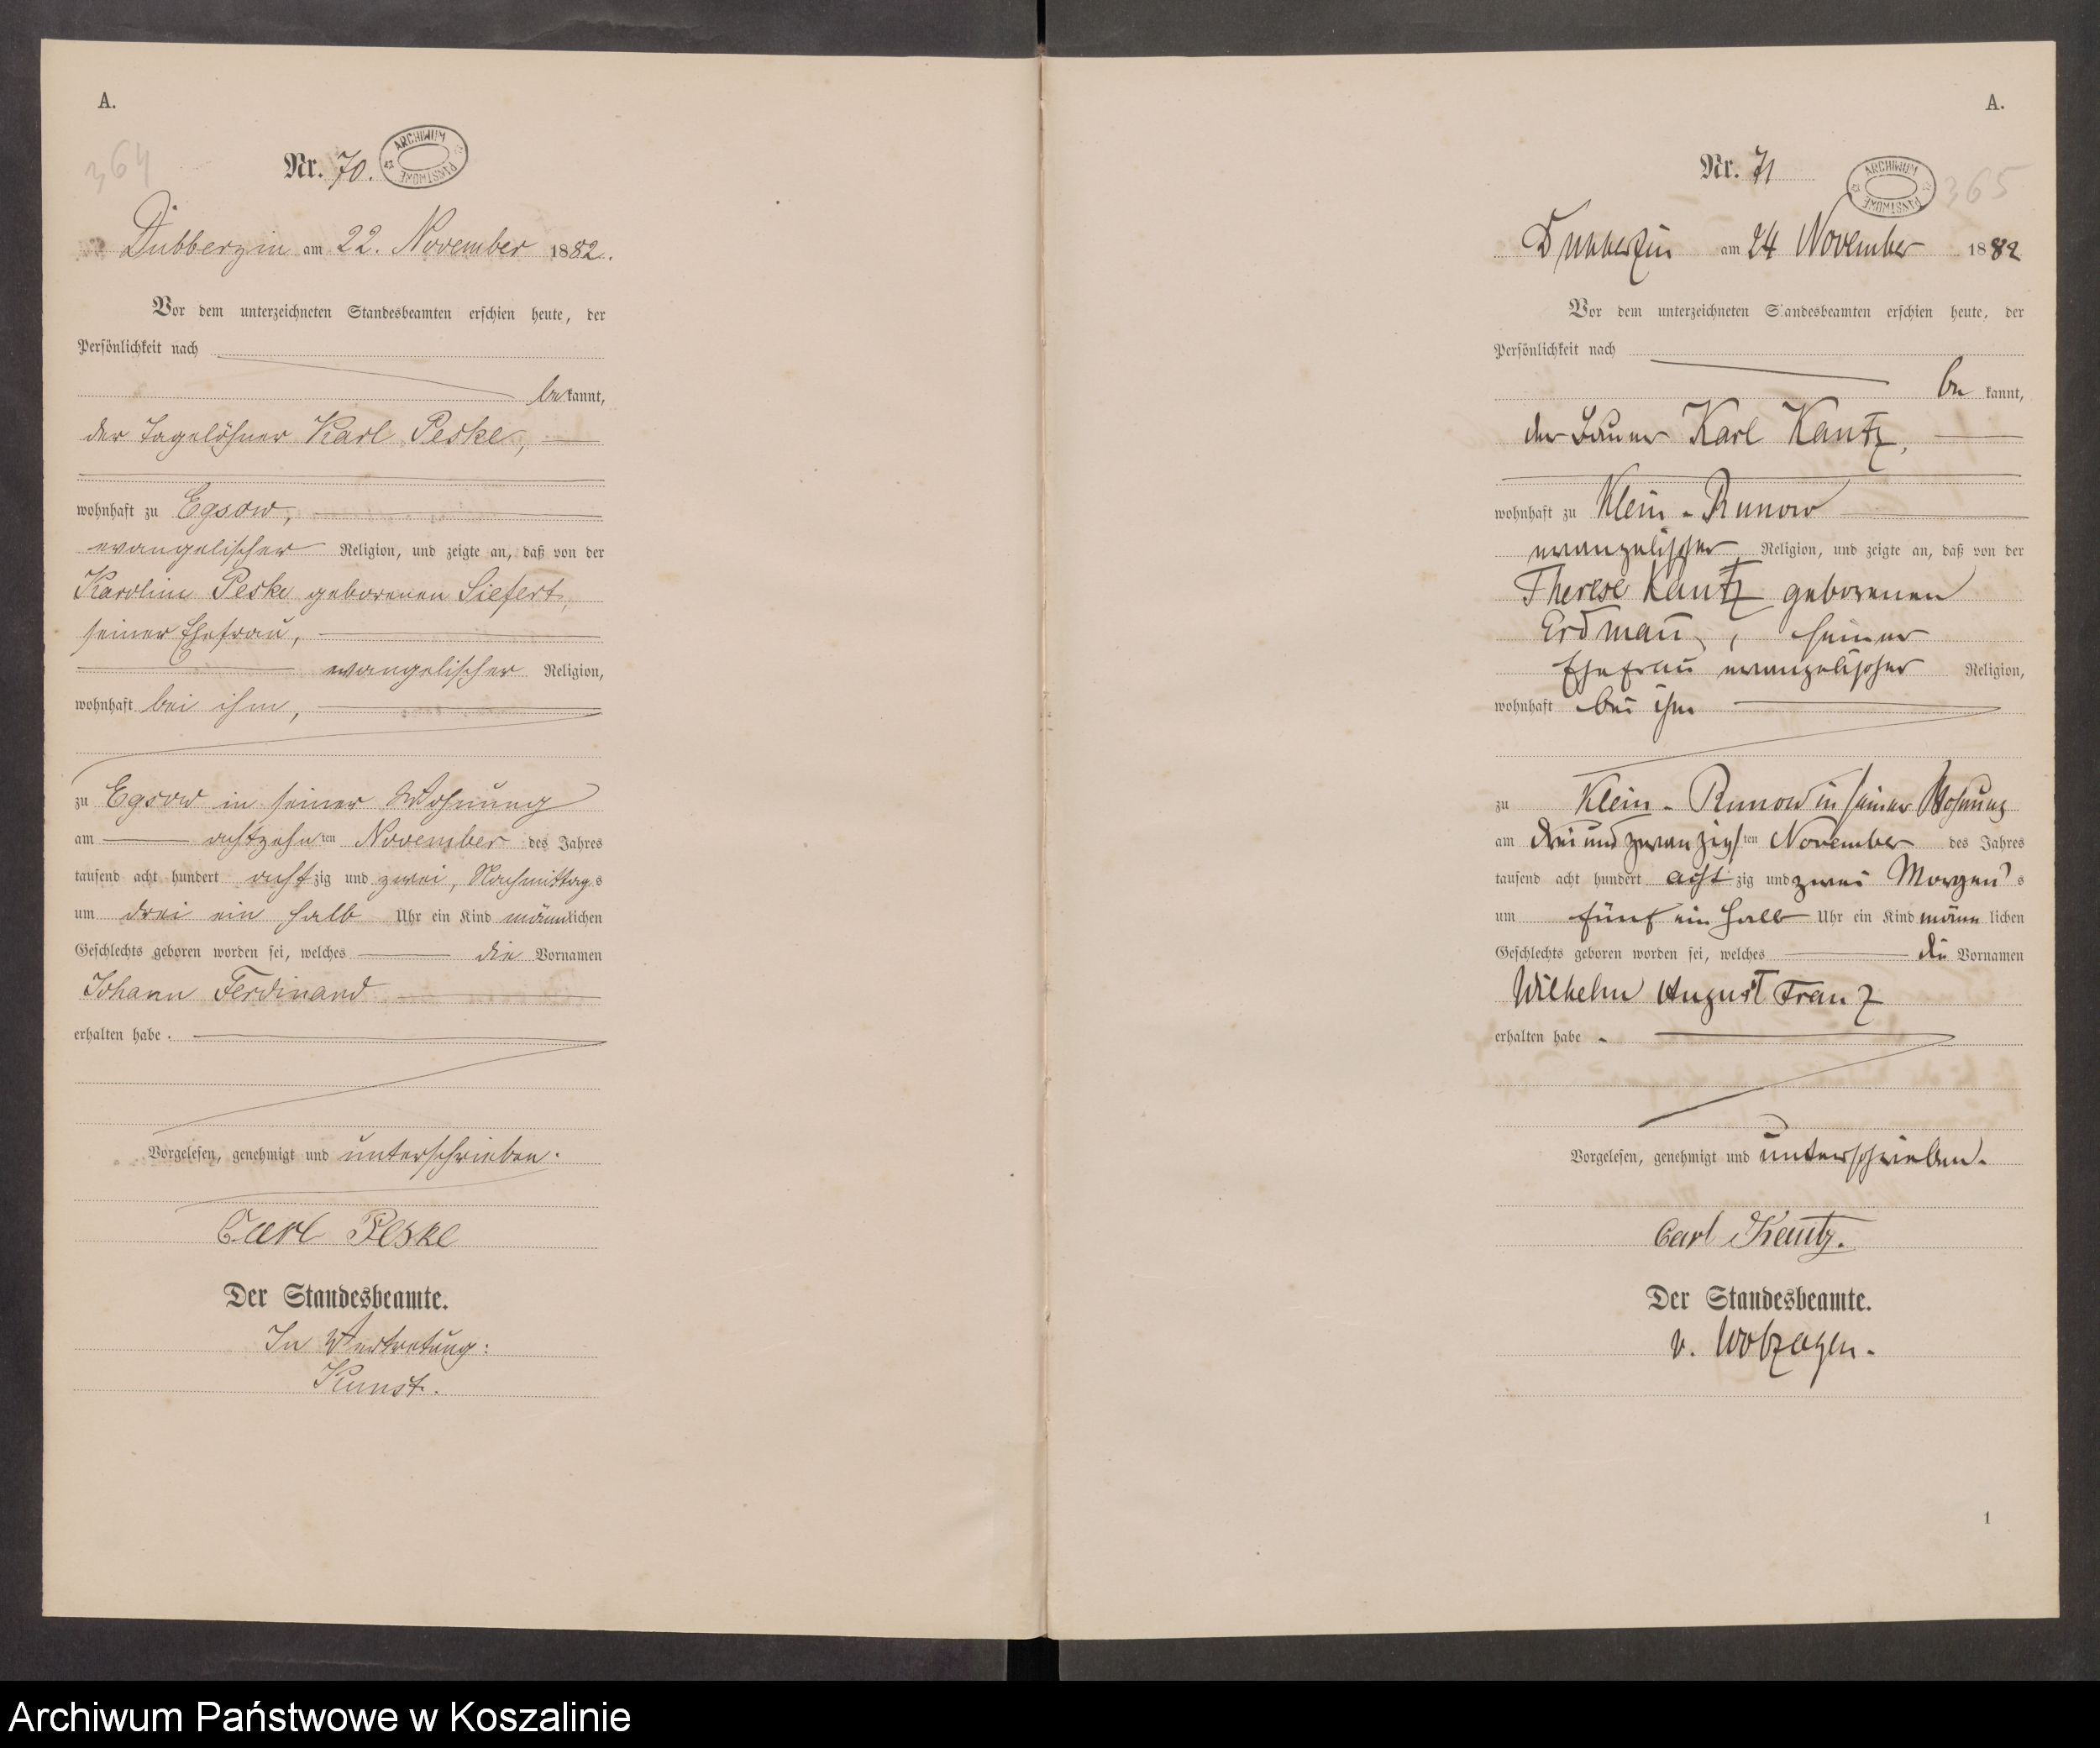 A.
364
Nr. 70.
ARCHIWUM PAŃSTWOWE
Dubberzin am 22. November 1882.
Vor dem unterzeichneten Standesbeamten erschien heute, der
Persönlichkeit nach
bekannt,
der Tagelöhner Karl Peske,
wohnhaft zu Egsow,
evangelischer Religion, und zeigte an, daß von der
Karoline Peske geborenen Siefert,
seiner Ehefrau,
evangelischer Religion,
wohnhaft bei ihm,
zu Egsow in seiner Wohnung
am achtzehnten November des Jahres
tausend acht hundert achtzig und zwei, Nachmittags
um drei ein halb Uhr ein Kind männlichen
Geschlechts geboren worden sei, welches die Vornamen
Johann Ferdinand
erhalten habe.
Vorgelesen, genehmigt und unterschrieben.
Carl Peske
Der Standesbeamte.
In Vertretung:
Kunst.
A.
Nr. 71
ARCHIWUM PAŃSTWOWE
365
Dubberzin am 24 November 1882
Vor dem unterzeichneten Standesbeamten erschien heute, der
Persönlichkeit nach
be kannt,
der Bauer Karl Kautz,
wohnhaft zu Klein-Runow
evangelischer Religion, und zeigte an, daß von der
Therese Kautz geborenen
Erdman, seiner
Ehefrau evangelischer Religion,
wohnhaft bei ihm
zu Klein-Runow in seiner Wohnung
am drei und zwanzigsten November des Jahres
tausend acht hundert achtzig und zwei Morgens
um fünf ein halb Uhr ein Kind männlichen
Geschlechts geboren worden sei, welches die Vornamen
Wilhelm August Franz
erhalten habe.
Vorgelesen, genehmigt und unterschrieben.
Carl Kautz.
Der Standesbeamte.
v. Wolzogen.
1
Archiwum Państwowe w Koszalinie